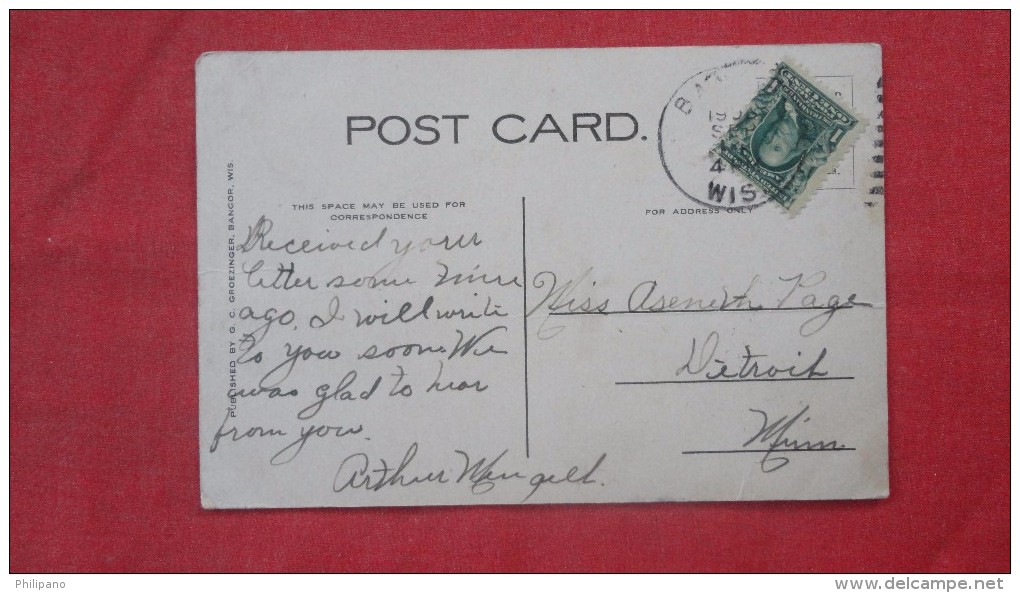 POST CARD.
WIS
1
THIS SPACE MAY BE USED FOR
CORRESPONDENCE
FOR ADDRESS ONLY
PUBLISHED BY G. C. GROEZINGER, BANGOR, WIS.
Received your
letter some time
ago. I will write
to you soon. We
was glad to hear
from you.
Arthur
Miss Aseneth Page
Detroit
Minn.
Philipano
www.delcampe.net